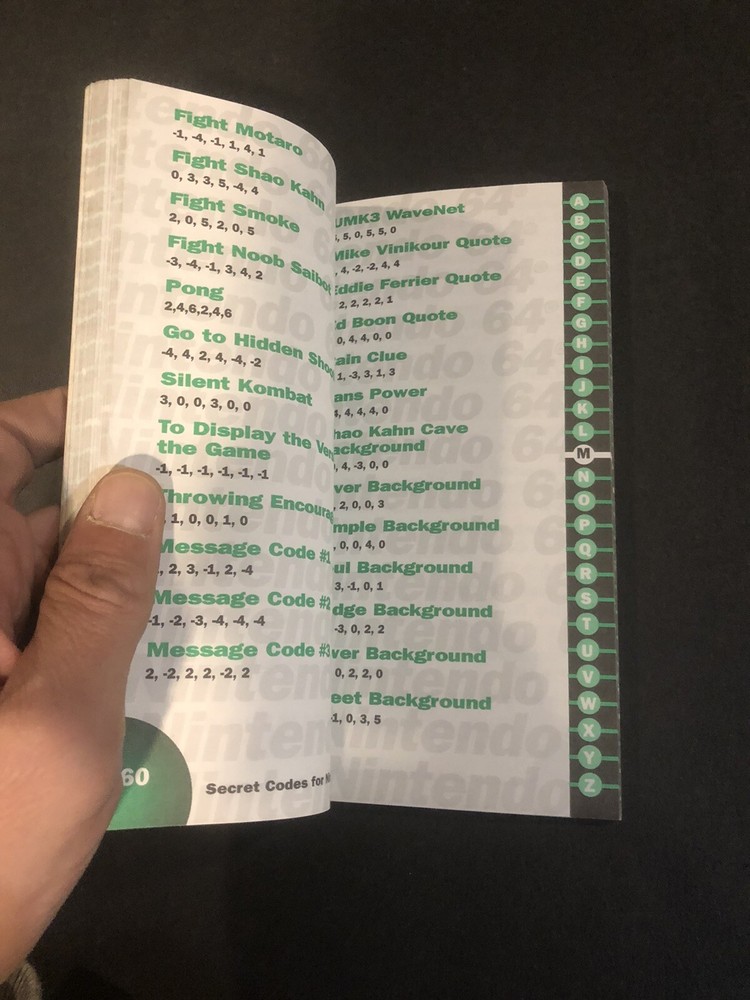 Fight Motaro
-1, -4, -1, 1, 4, 1
Fight Shao Kahn
0, 3, 3, 5, -4, 4
Fight Smoke
2, 0, 5, 2, 0, 5
Fight Noob Saibot
-3, -4, -1, 3, 4, 2
Pong
2,4,6,2,4,6
Go to Hidden
-4, 4, 2, 4, -4, -2
Silent Kombat
3, 0, 0, 3, 0, 0
To Display the
the Game
-1, -1, -1, -1, -1, -1
Throwing
1, 0, 0, 1, 0
Message Code #1
, 2, 3, -1, 2, -4
Message Code #2
-1, -2, -3, -4, -4, -4
Message Code #3
2, -2, 2, 2, -2, 2
60
Secret Codes for
UMK3 WaveNet
, 5, 0, 5, 5, 0
Mike Vinikour Quote
, 4, -2, -2, 4, 4
Eddie Ferrier Quote
2, 2, 2, 2, 1
d Boon Quote
0, 4, 4, 0, 0
ain Clue
1, -3, 3, 1, 3
ans Power
4, 4, 4, 4, 0
hao Kahn Cave
ackground
, 4, -3, 0, 0
ver Background
, 2, 0, 0, 3
mple Background
, 0, 0, 4, 0
ul Background
3, -1, 0, 1
dge Background
-3, 0, 2, 2
ver Background
0, 2, 2, 0
eet Background
-1, 0, 3, 5
A
B
C
D
E
F
G
H
I
J
K
L
M
N
O
P
Q
R
S
T
U
V
W
X
Y
Z